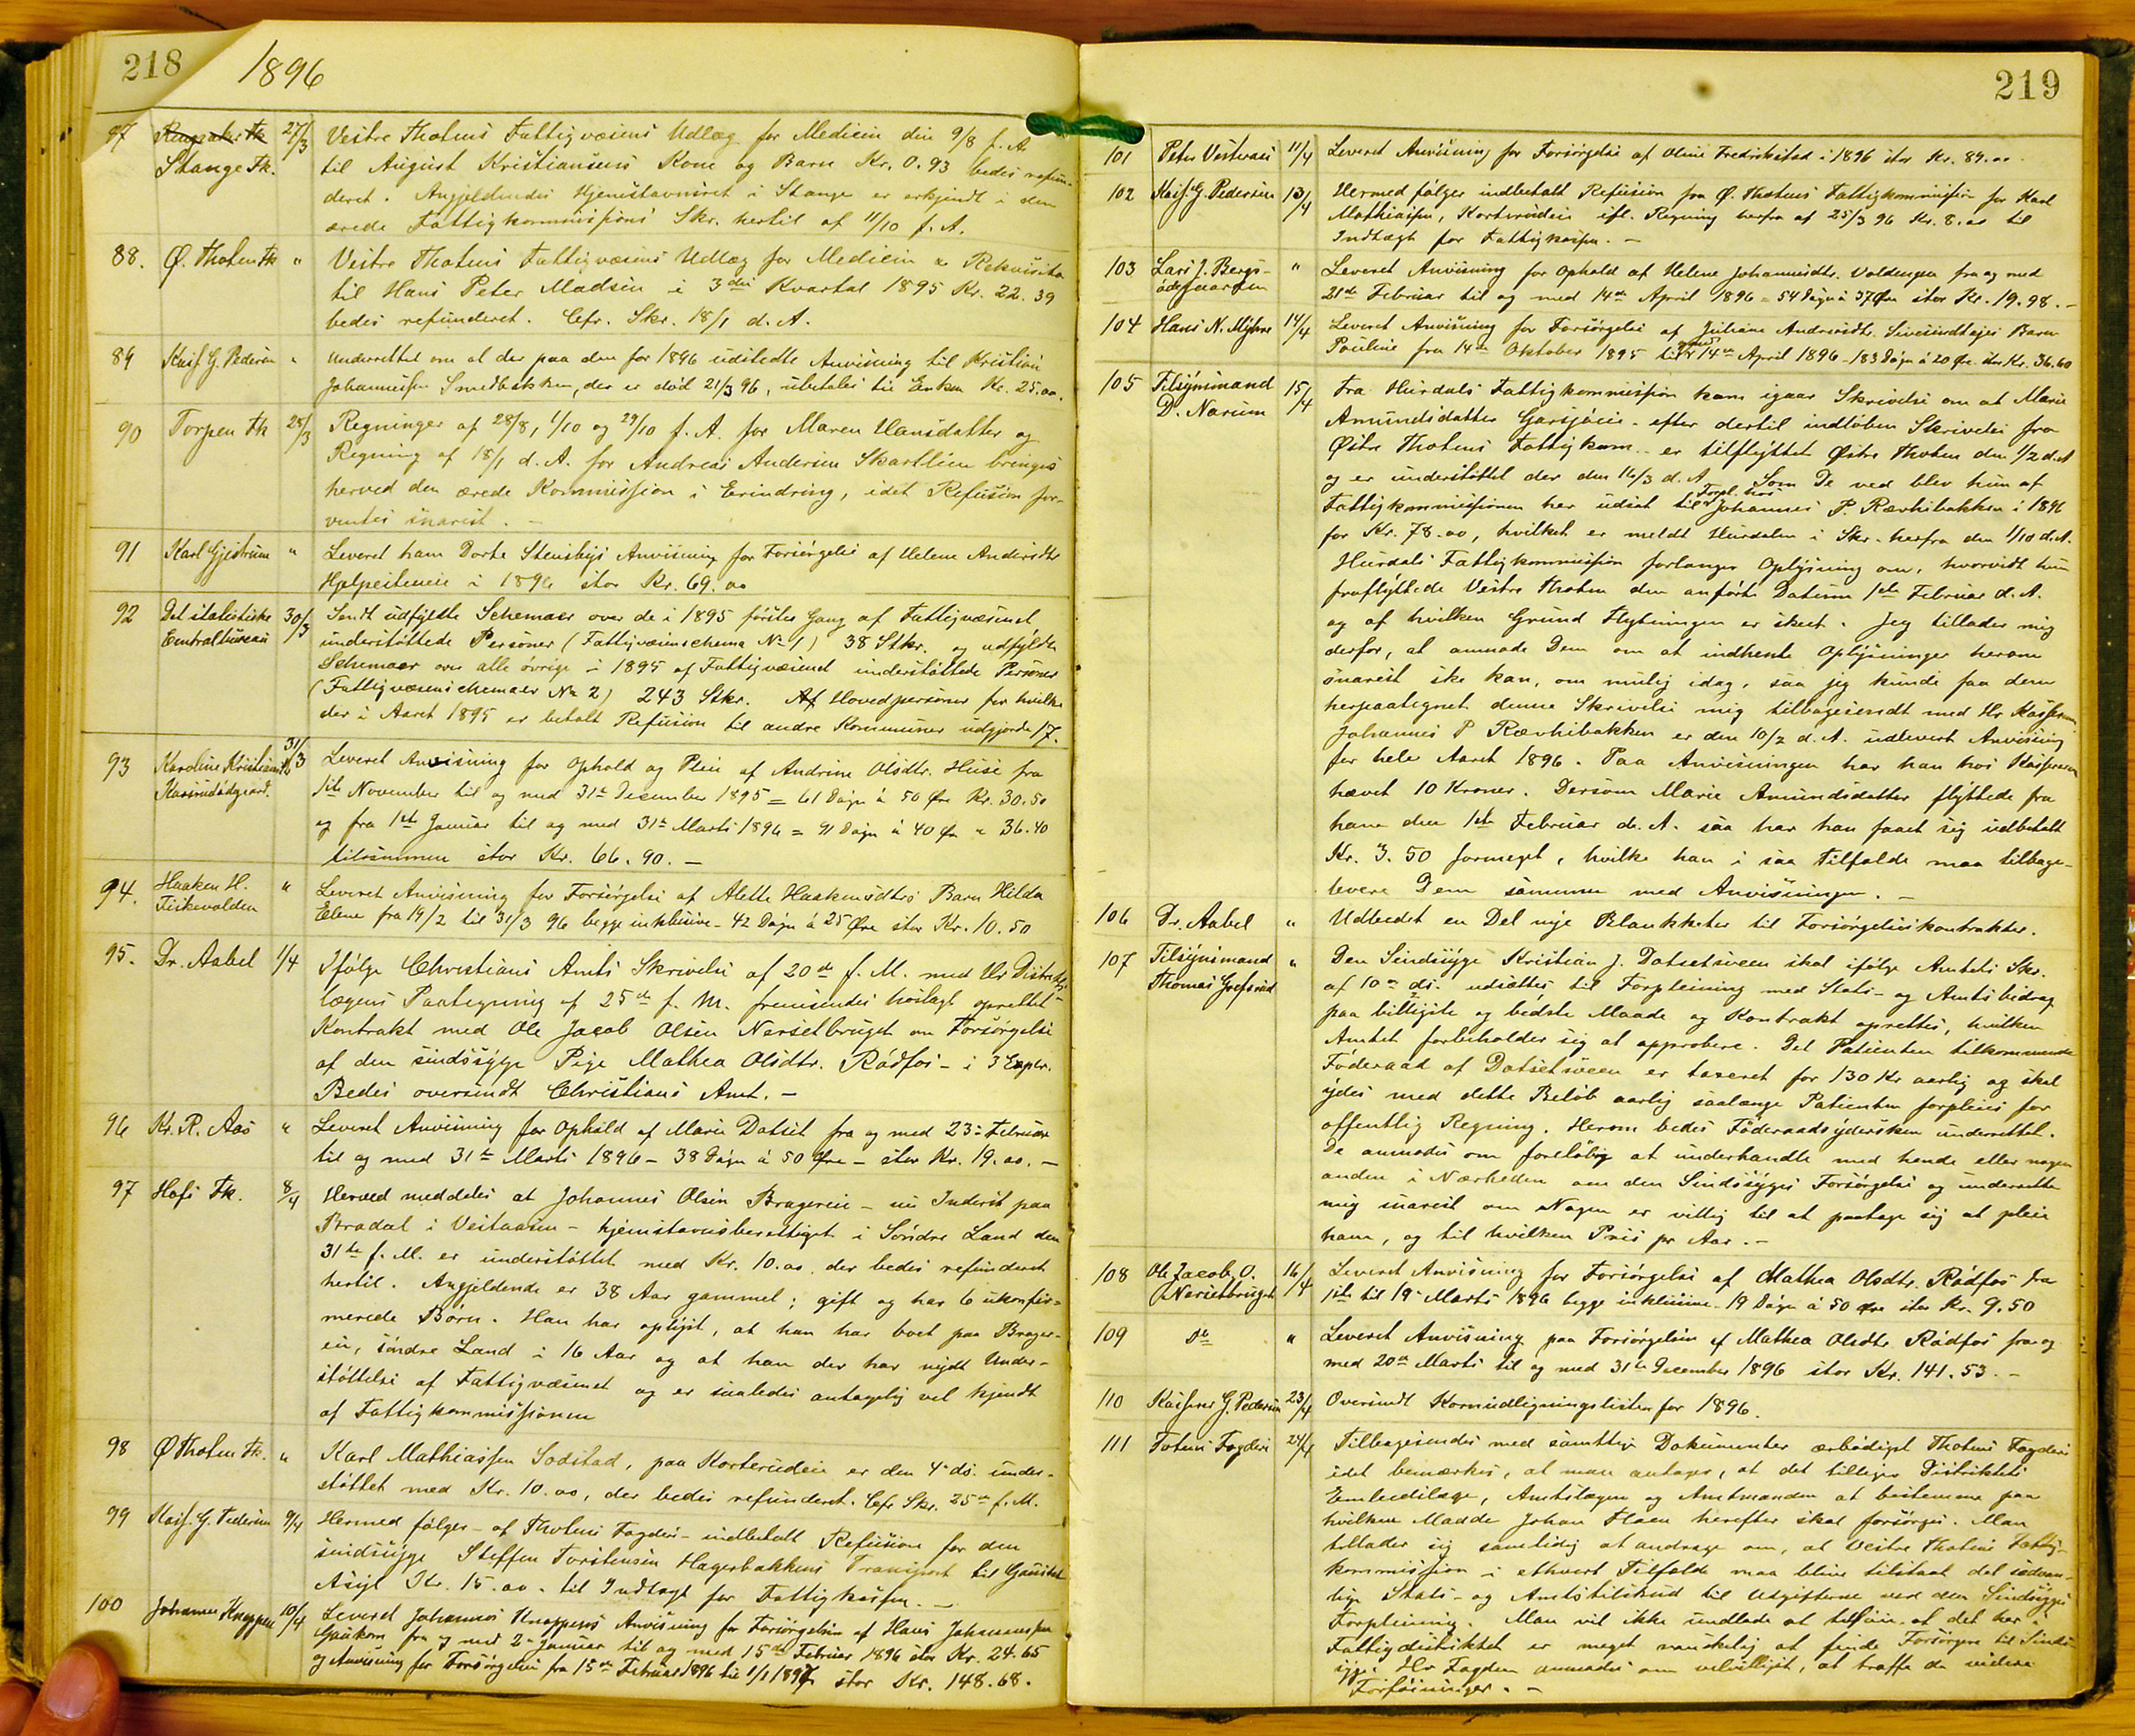 218 1896
87 Ringsaker Fk 27/3 Vestre Thotens Fattigvæsens Udlæg for Medicin den 9/8 f. A.
Stange Fk. til August Kristiansens Kone og Barn Kr. 0.93 bedes refun-
deret. Angjeldendes Hjemstavnsret i Stange er erkjendt i den
ærede Fattigkommissions Skr. hertil af 11/10 f. A.
88. Ø. Thoten Fk " Vestre Thotens Fattigvæsens Udlæg for Medicin & Rekvisita
til Hans Peter Madsen i 3die Kvartal 1895 Kr. 22.39
bedes refunderet. Cfr. Skr. 18/1 d. A.
89 Kass. G. Pedersen " Underrettet om at der paa den for 1896 udstedte Anvisning til Kristian
Johannessen Smedbakken, der er død 21/3 96, udbetales til Enken Kr. 25.00.
90 Torpen Fk 28/3 Regninger af 28/8, 1/10 og 29/10 f. A. for Maren Hansdatter og
Regning af 18/1 d. A. for Andreas Andersen Skartlien bringes
herved den ærede Kommission i Erindring, idet Refusion for-
ventes snarest. –
91 Karl Gjestrum " Leveret ham Dorte Stensbys Anvisning for Forsørgelse af Helene Andersdtr
Hjelpeseteneie i 1896 stor Kr. 69.00
92 Det statistiske 30/3 Sendt udfyldte Schemaer over de i 1895 første Gang af Fattigvæsenet
Centralbureau understøttede Personer (Fattigvæsenschema No 1) 38 Stkr. og udfyldte
Schemaer over alle øvrige i 1895 af Fattigvæsenet understøttede Personer
(Fattigvæsenschemaer No 2) 243 Stkr. Af Hovedpersoner for hvilke
der i Aaret 1895 er betalt Refusion til andre Kommuner udgjorde 17.
93 Karoline Kristiansd. 31/3 Leveret Anvisning for Ophold og Pleie af Andrine Olsdtr. Huse fra
1ste November til og med 31te December 1895 = 61 Døgn á 50 Øre Kr. 30.50
og fra 1ste Januar til og med 31te Marts 1896 = 91 Døgn á 40 Øre " 36.40
tilsammen stor Kr. 66.90. –
94. Haaken H. " Leveret Anvisning for Forsørgelse af Alette Haakensdtrs Barn Hilda
Fiskevolden Elene fra 19/2 til 31/3 96 begge inklusive – 42 Døgn á 25 Øre stor Kr. 10.50
95. Dr. Aabel 1/4 Ifølge Christians Amts Skrivelse af 20de f. M. med Hr Distrikts-
lægens Paategning af 25de f. M. fremsendes hoslagt oprettet
Kontrakt med Ole Jacob Olsen Nersetbruget om Forsørgelse
af den sindssyge Pige Mathea Olsdtr. Rødfos – i 3 Expl.
Bedes oversendt Christians Amt. –
96 Kr. R. Aas " Leveret Anvisning for Ophold af Marie Dotset fra og med 23de Februar
til og med 31te Marts 1896 – 38 Døgn á 50 Øre – stor Kr. 19.00. –
97 Hofs Fk. 8/4 Herved meddeles at Johannes Olsen Bragereie – nu Inderst paa
Bradal i Vestaasen – hjemstavnsberettiget i Søndre Land den
31te f. M. er understøttet med Kr. 10.00 der bedes refunderet
hertil. Angjeldende er 38 Aar gammel; gift og har 6 ukonfir-
merede Børn. Han har oplyst, at han har boet paa Brager-
eie, søndre Land i 16 Aar og at han der har nydt Under-
støttelse af Fattigvæsenet og er saaledes antagelig vel kjendt
af Fattigkommissionen
98 Ø Thoten Fk. " Karl Mathiassen Sodstad, paa Korterudeie er den 4de ds. under-
støttet med Kr. 10.00, der bedes refunderet. Cfr Skr. 25de f. M.
99 Kass. G. Pedersen 9/4 Hermed følger – af Thotens Fogderi – indbetalt Refusion for den
sindssyge Steffen Torstensen Hagerbakkens Transport til Gaustad
Asyl Kr. 15.00. til Indtægt for Fattigkassen. –
100 Johannes Knappen 10/4 Leveret Johannes Knappens Anvisning for Forsørgelsen af Hans Johannessen
Gaukom fra og med 2den Januar til og med 15de Februar 1896 stor Kr. 24.65
og Anvisning for Forsørgelsen fra 15de Februar 1896 til 1/1 1897 stor Kr. 148.68.
219
101 Peter Vesteraas 11/4 Leveret Anvisning for Forsørgelse af Oline Fredrikstad i 1896 stor Kr. 89.00
102 Kass. G. Pedersen 13/4 Hermed følger indbetalt Refusion fra Ø. Thotens Fattigkommission for Karl
Mathiassen, Korterudeie ifl. Regning herfra af 25/3 96 Kr. 8.00 til
Indtægt for Fattigkassen. –
103 Lars J. Bergs- " Leveret Anvisning for Ophold af Helene Johannesdtr. Voldengen fra og med
ødegaarden 21de Februar til og med 14de April 1896 = 54 Døgn á 37 Øre stor Kr. 19.98. –
104 Hans N. Myhre 14/4 Leveret Anvisning for Forsørgelse af Juliane Andersdtr. Barn
Pauline fra 14de Oktober 1895 til og med 14de April 1896 – 183 Døgn á 20 Øre stor Kr. 36.60
105 Tilsynsmand 15/4 Fra Hurdals Fattigkommission kom igaar Skrivelse om at Marie
D. Narum Amundsdatter Garsjøeie – efter dertil indløben Skrivelse fra
Østre Thotens Fattigkom. – er tilflyttet Østre Thoten den 1/2 d. A
og er understøttet der den 16/3 d. A. Som De ved blev hun af
Fattigkommissionen her udsat til Forpl. hos Johannes P. Rævhibakken i 1896
for Kr. 78.00, hvilket er meldt Hurdalen i Skr. herfra den 1/10 d. A.
Hurdals Fattigkommission forlanger Oplysning om, hvorvidt hun
fraflyttede Vestre Thoten den anførte Datum 1ste Februar d. A.
og af hvilken Grund Flytningen er skeet. Jeg tillader mig
derfor, at anmode Dem om at indhente Oplysninger herom
snarest ske kan, om mulig idag, saa jeg kunde faa dem
herpaategnet denne Skrivelse mig tilbagesendt med Hr Kassereren
Johannes P Rævhibakken er den 10/2 d. A. udlevert Anvisning
for hele Aaret 1896. Paa Anvisningen har han hos Kassereren
hævet 10 Kroner. Dersom Marie Amundsdatter flyttede fra
ham den 1ste Februar d. A. saa har han faaet sig udbetalt
Kr. 3.50 formeget, hvilke han i saa Tilfælde maa tilbage-
levere Dem sammen med Anvisningen. –
106 Dr. Aabel " Udbedet en Del nye Blanketter til Forsørgelseskontrakter.
107 Tilsynsmand " Den Sindssyge Kristian J. Dotsetsveen skal ifølge Amtets Skr.
Thomas Grefsrud af 10de ds. udsættes til Forpleining med Stats- og Amtsbidrag
paa billigste og bedste Maade og Kontrakt oprettes, hvilken
Amtet forbeholder sig at approbere. Det Patienten tilkommende
Føderaad af Dotsetsveen er taxeret for 130 Kr aarlig og skal
ydes med dette Beløb aarlig saalænge Patienten forpleies for
offentlig Regning. Herom bedes Føderaadsydersken underrettet.
De anmodes om foreløbig at underhandle med hende eller nogen
anden i Nærheden om den Sindssyges Forsørgelse og underrette
mig snarest om Nogen er villig til at paatage sig at pleie
ham, og til hvilken Pris pr Aar. –
108 Ole Jacob O. 16/4 Leveret Anvisning for Forsørgelse af Mathea Olsdtr. Rødfos fra
Nersetbruget 1ste til 19de Marts 1896 begge inklusive – 19 Døgn á 50 Øre stor Kr. 9.50
109 Do " Leveret Anvisning paa Forsørgelsen af Mathea Olsdtr Rødfos fra og
med 20de Marts til og med 31te December 1896 stor Kr. 141.53. –
110 Kasserer G. Pedersen 23/4 Oversendt Kornudligningslisten for 1896.
111 Totens Fogderi 24/4 Tilbagesendes med samtlige Dokumenter ærbødigst Thotens Fogderi
idet bemærkes, at man antager, at det tilligger Distriktets
Embedslæge, Amtslægen og Amtmanden at bestemme paa
hvilken Maade Johan Flaen herefter skal forsørges. Man
tillader sig samtidig at andrage om, at Vestre Thotens Fattig-
kommission i ethvert Tilfælde maa blive tilstaaet det sædvan-
lige Stats- og Amtstilskud til Udgifterne ved den Sindssyges
Forpleining. Man vil ikke undlade at tilføie at det her i
Fattigdistriktet er meget vanskelig at finde Forsørgere til Sinds-
syge. Hr Fogden anmodes om velvilligst, at træffe de videre
Forføininger. –